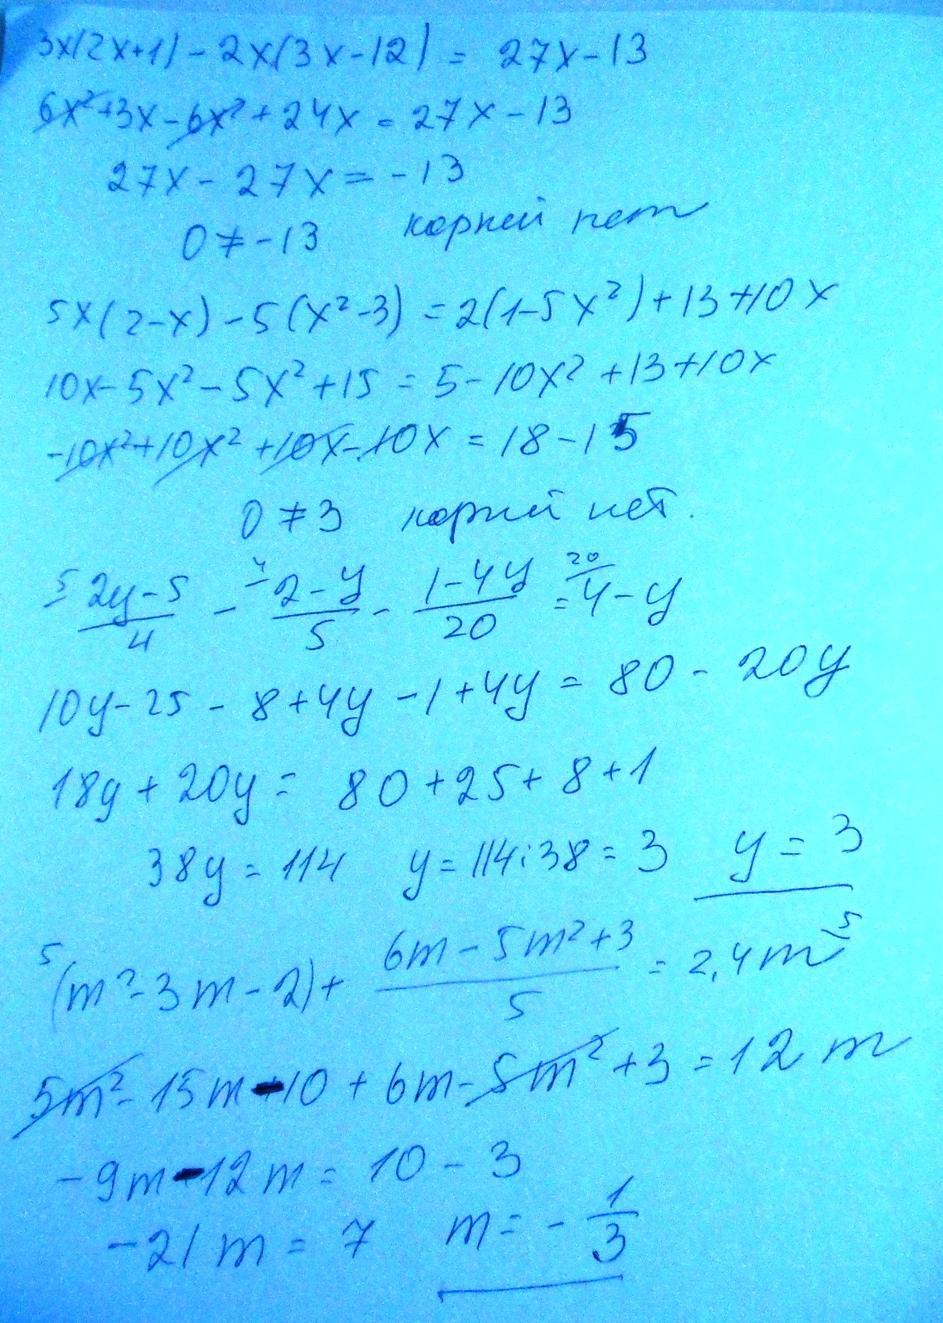 3x(2x+1) - 2x(3x-12) = 27x-13
6x²+3x-6x²+24x = 27x-13
27x-27x=-13
0≠-13 корней нет
5x(2-x)-5(x²-3)=2(1-5x²)+13+10x
10x-5x²-5x²+15=5-10x²+13+10x
-10x²+10x²+10x-10x=18-15
0≠3 корней нет.
⁵⁾(2y-5)/4 - ⁴⁾(2-y)/5 - (1-4y)/20 = ²⁰⁾4-y
10y-25-8+4y-1+4y=80-20y
18y+20y=80+25+8+1
38y=114 y=114:38=3 y=3
⁵⁾(m²-3m-2)+(6m-5m²+3)/5=2,4m ⁵⁾
5m²-15m-10+6m-5m²+3=12m
-9m-12m=10-3
-21m=7 m=-1/3